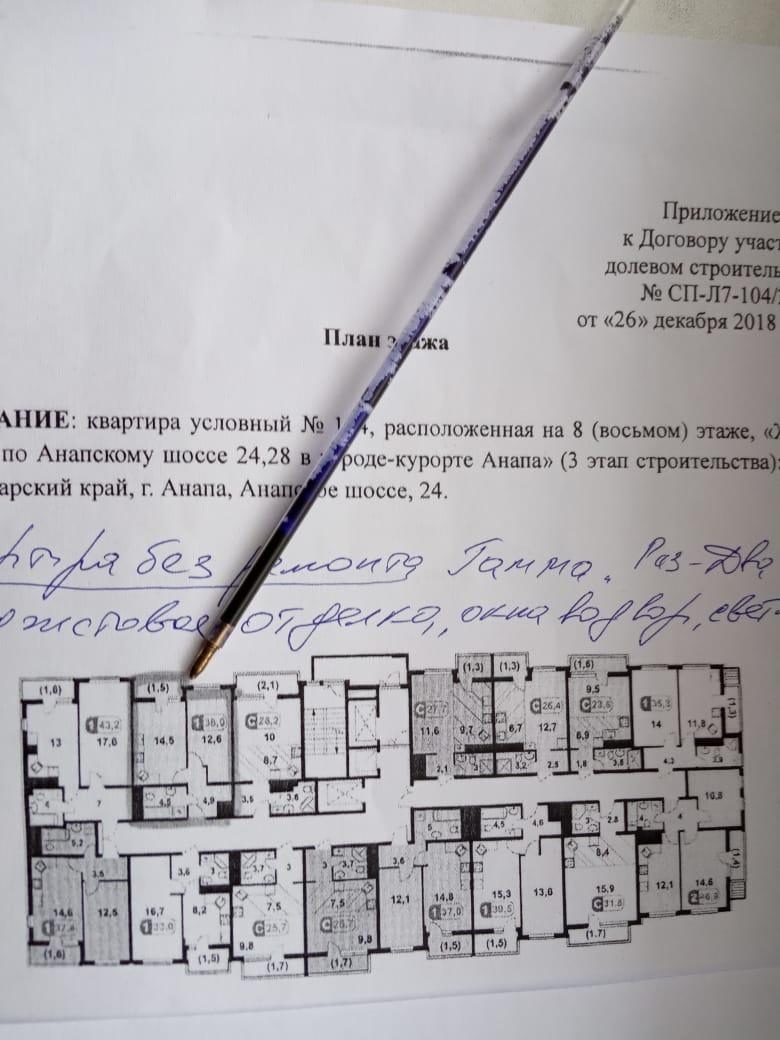 Приложение
к Договору участ
долевом строитель
№ СП-Л7-104/
от «26» декабря 2018
План э ажа
АНИЕ: квартира условный № 1 4, расположенная на 8 (восьмом) этаже, «Ж
по Анапскому шоссе 24,28 в роде-курорте Анапа» (3 этап строительства):
арский край, г. Анапа, Анапс ое шоссе, 24.
ртира без ремонта Гамма. Раз-Два
отделка, окна во двор, свет
(1,6) (1,5) (2,1) (1,3) (1,3) (1,6)
1 43,2 1 38,0 С 28,2 С 26,4 С 23,6 1 35,3
13 17,6 14,5 12,6 10 11,6 9,7 6,7 12,7 9,5 6,9 14 11,8 (1,3)
8,7
2,1 3,2 2,5 1,8 3,6 4,3 3,9
4 7 4,5 4,9 3,5 3,6 10,8
5,2 5 4,5 4,6 3 2,8 4 4
3,6 3,6 3 3,7 3 3 3,7 3,6 8,4
14,6 12,5 16,7 8,2 7,5 7,5 12,1 14,8 15,3 13,6 15,9 12,1 14,6 (1,4)
1 37,8 1 33,0 С 25,7 С 25,7 1 37,0 1 39,5 С 31,8 2 46,3
9,8 9,8
(1,6) (1,5) (1,7) (1,7) (1,5) (1,5) (1,7)